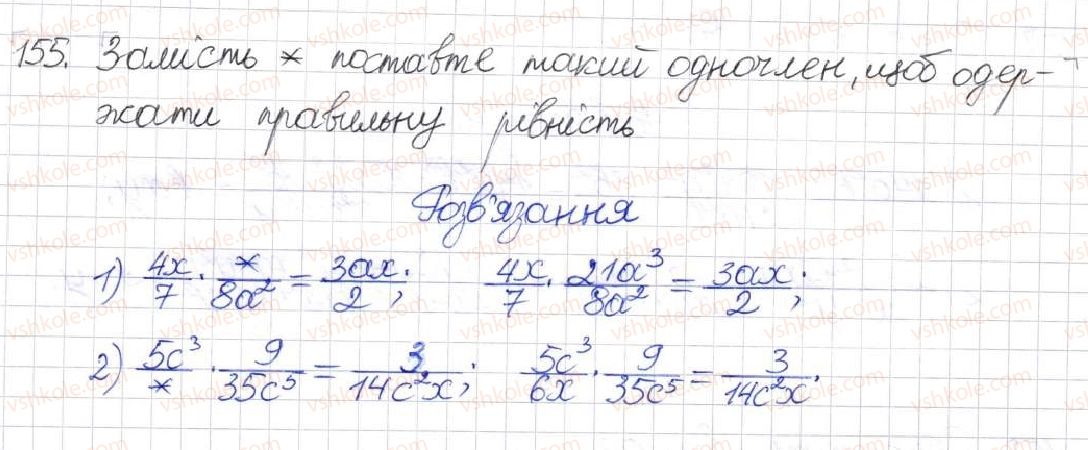 155. Замість * поставте такий одночлен, щоб одер-
жати правильну рівність
Розв'язання
1) 4x/7 · */8a² = 3ax/2; 4x/7 · 21a³/8a² = 3ax/2;
2) 5c³/* · 9/35c⁵ = 3/14c²x; 5c³/6x · 9/35c⁵ = 3/14c²x.